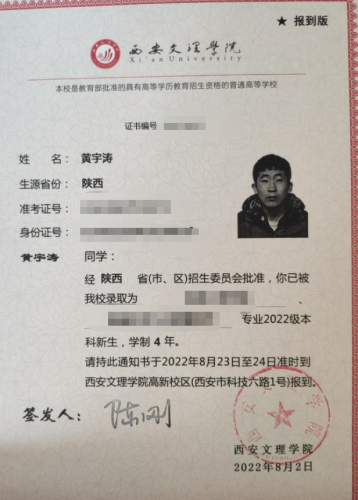 ★ 报到版
西安文理学院
Xi'an University
本校是教育部批准的具有高等学历教育招生资格的普通高等学校
证书编号
姓 名： 黄宇涛
生源省份： 陕西
准考证号：
身份证号：
黄宇涛 同学：
经 陕西 省(市、区)招生委员会批准，你已被
我校录取为 、
专业2022级本
科新生，学制 4 年。
请持此通知书于2022年8月23日至24日准时到
西安文理学院高新校区(西安市科技六路1号)报到。
签发人： 陈刚
西安文理学院
西安文理学院
2022年8月2日